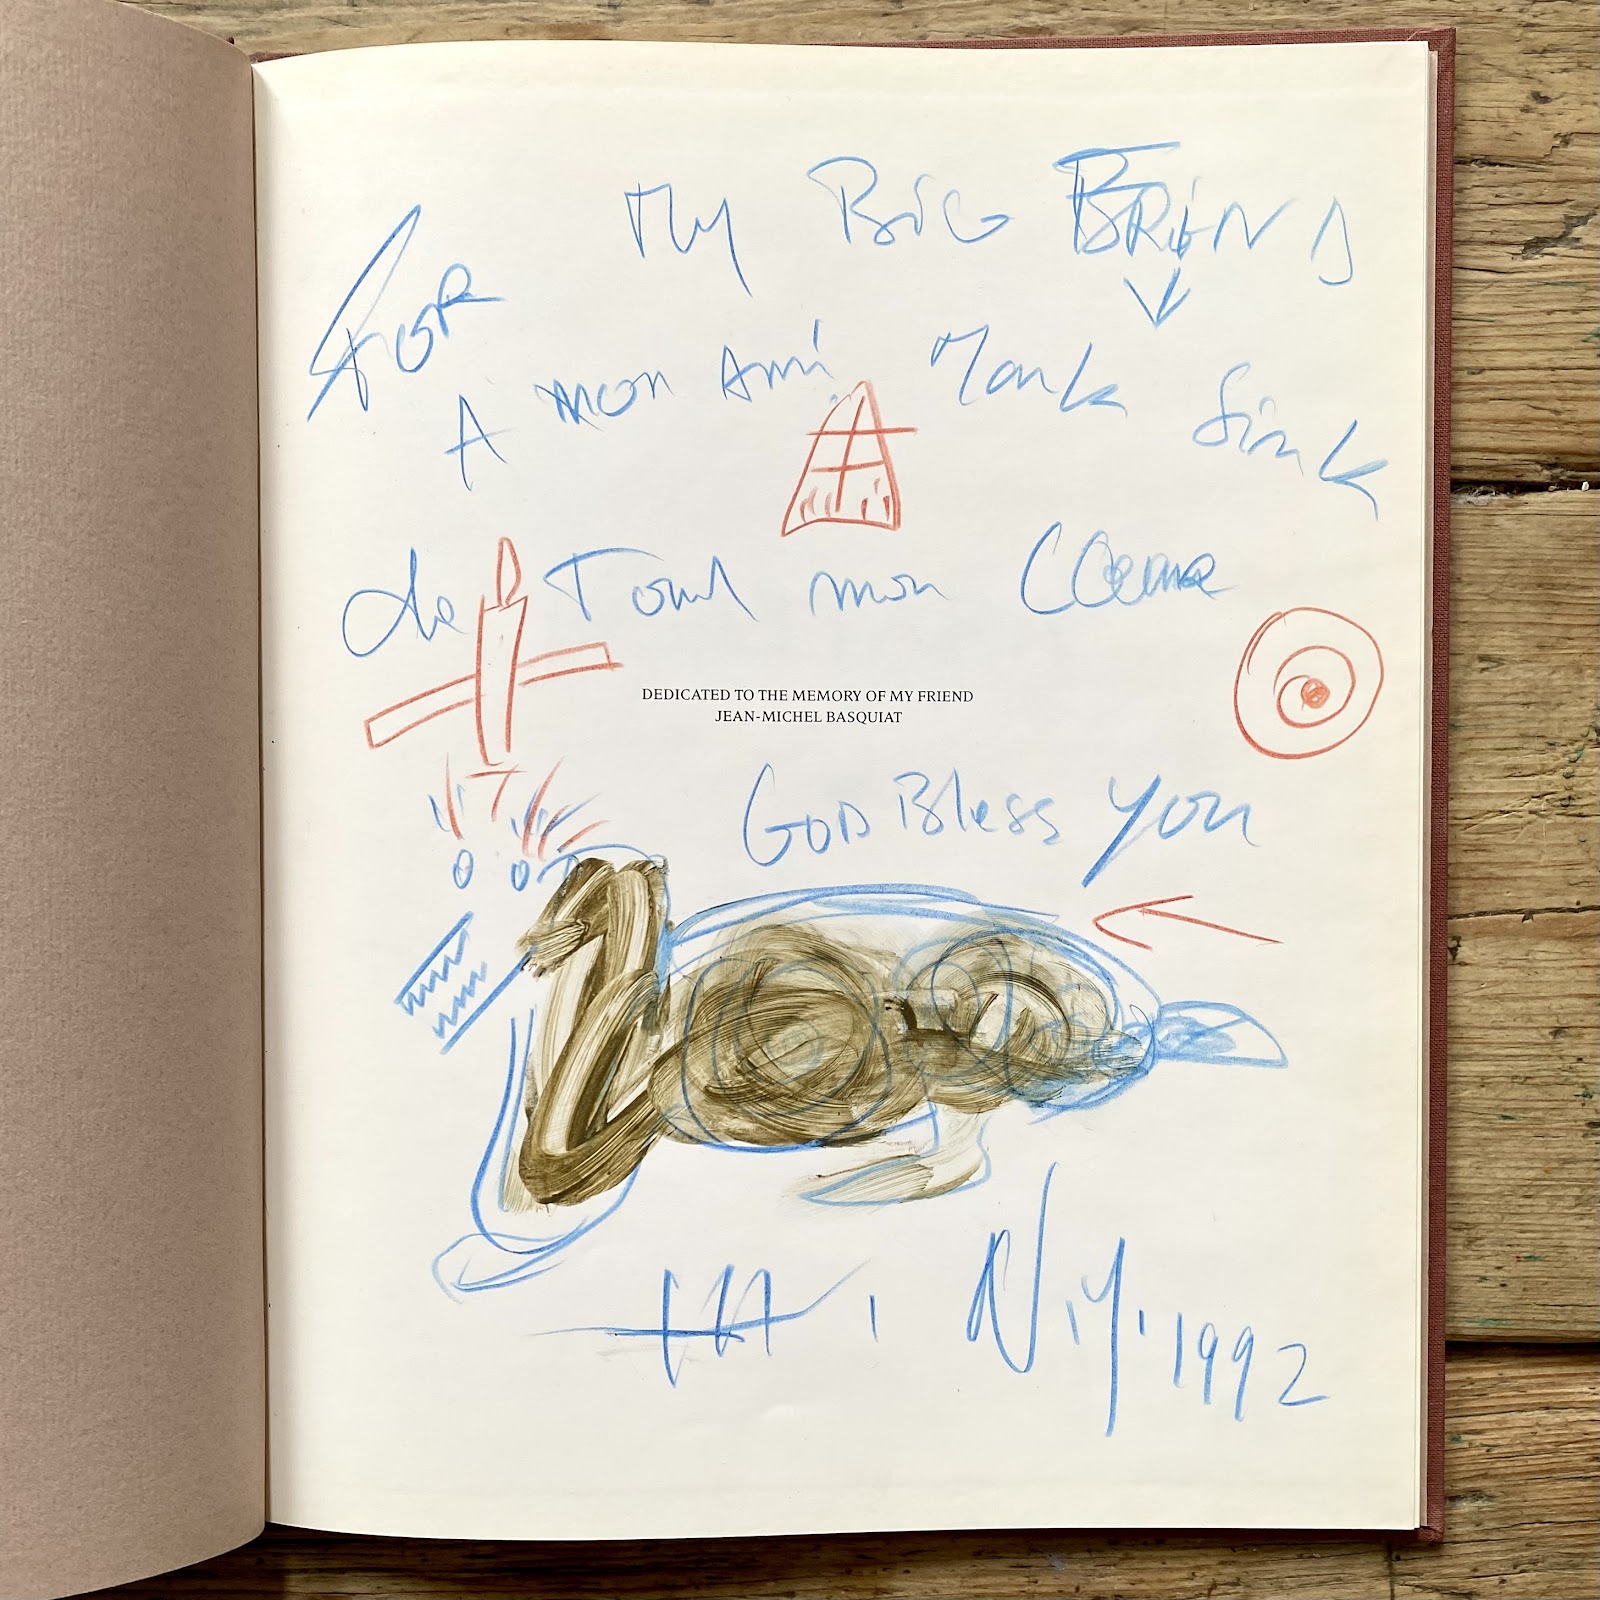 FOR My BiG FRiEND
A mon Ami Mark Sink
de Tout mon Coeur
DEDICATED TO THE MEMORY OF MY FRIEND
JEAN-MICHEL BASQUIAT
GOD Bless you
N.Y. 1992